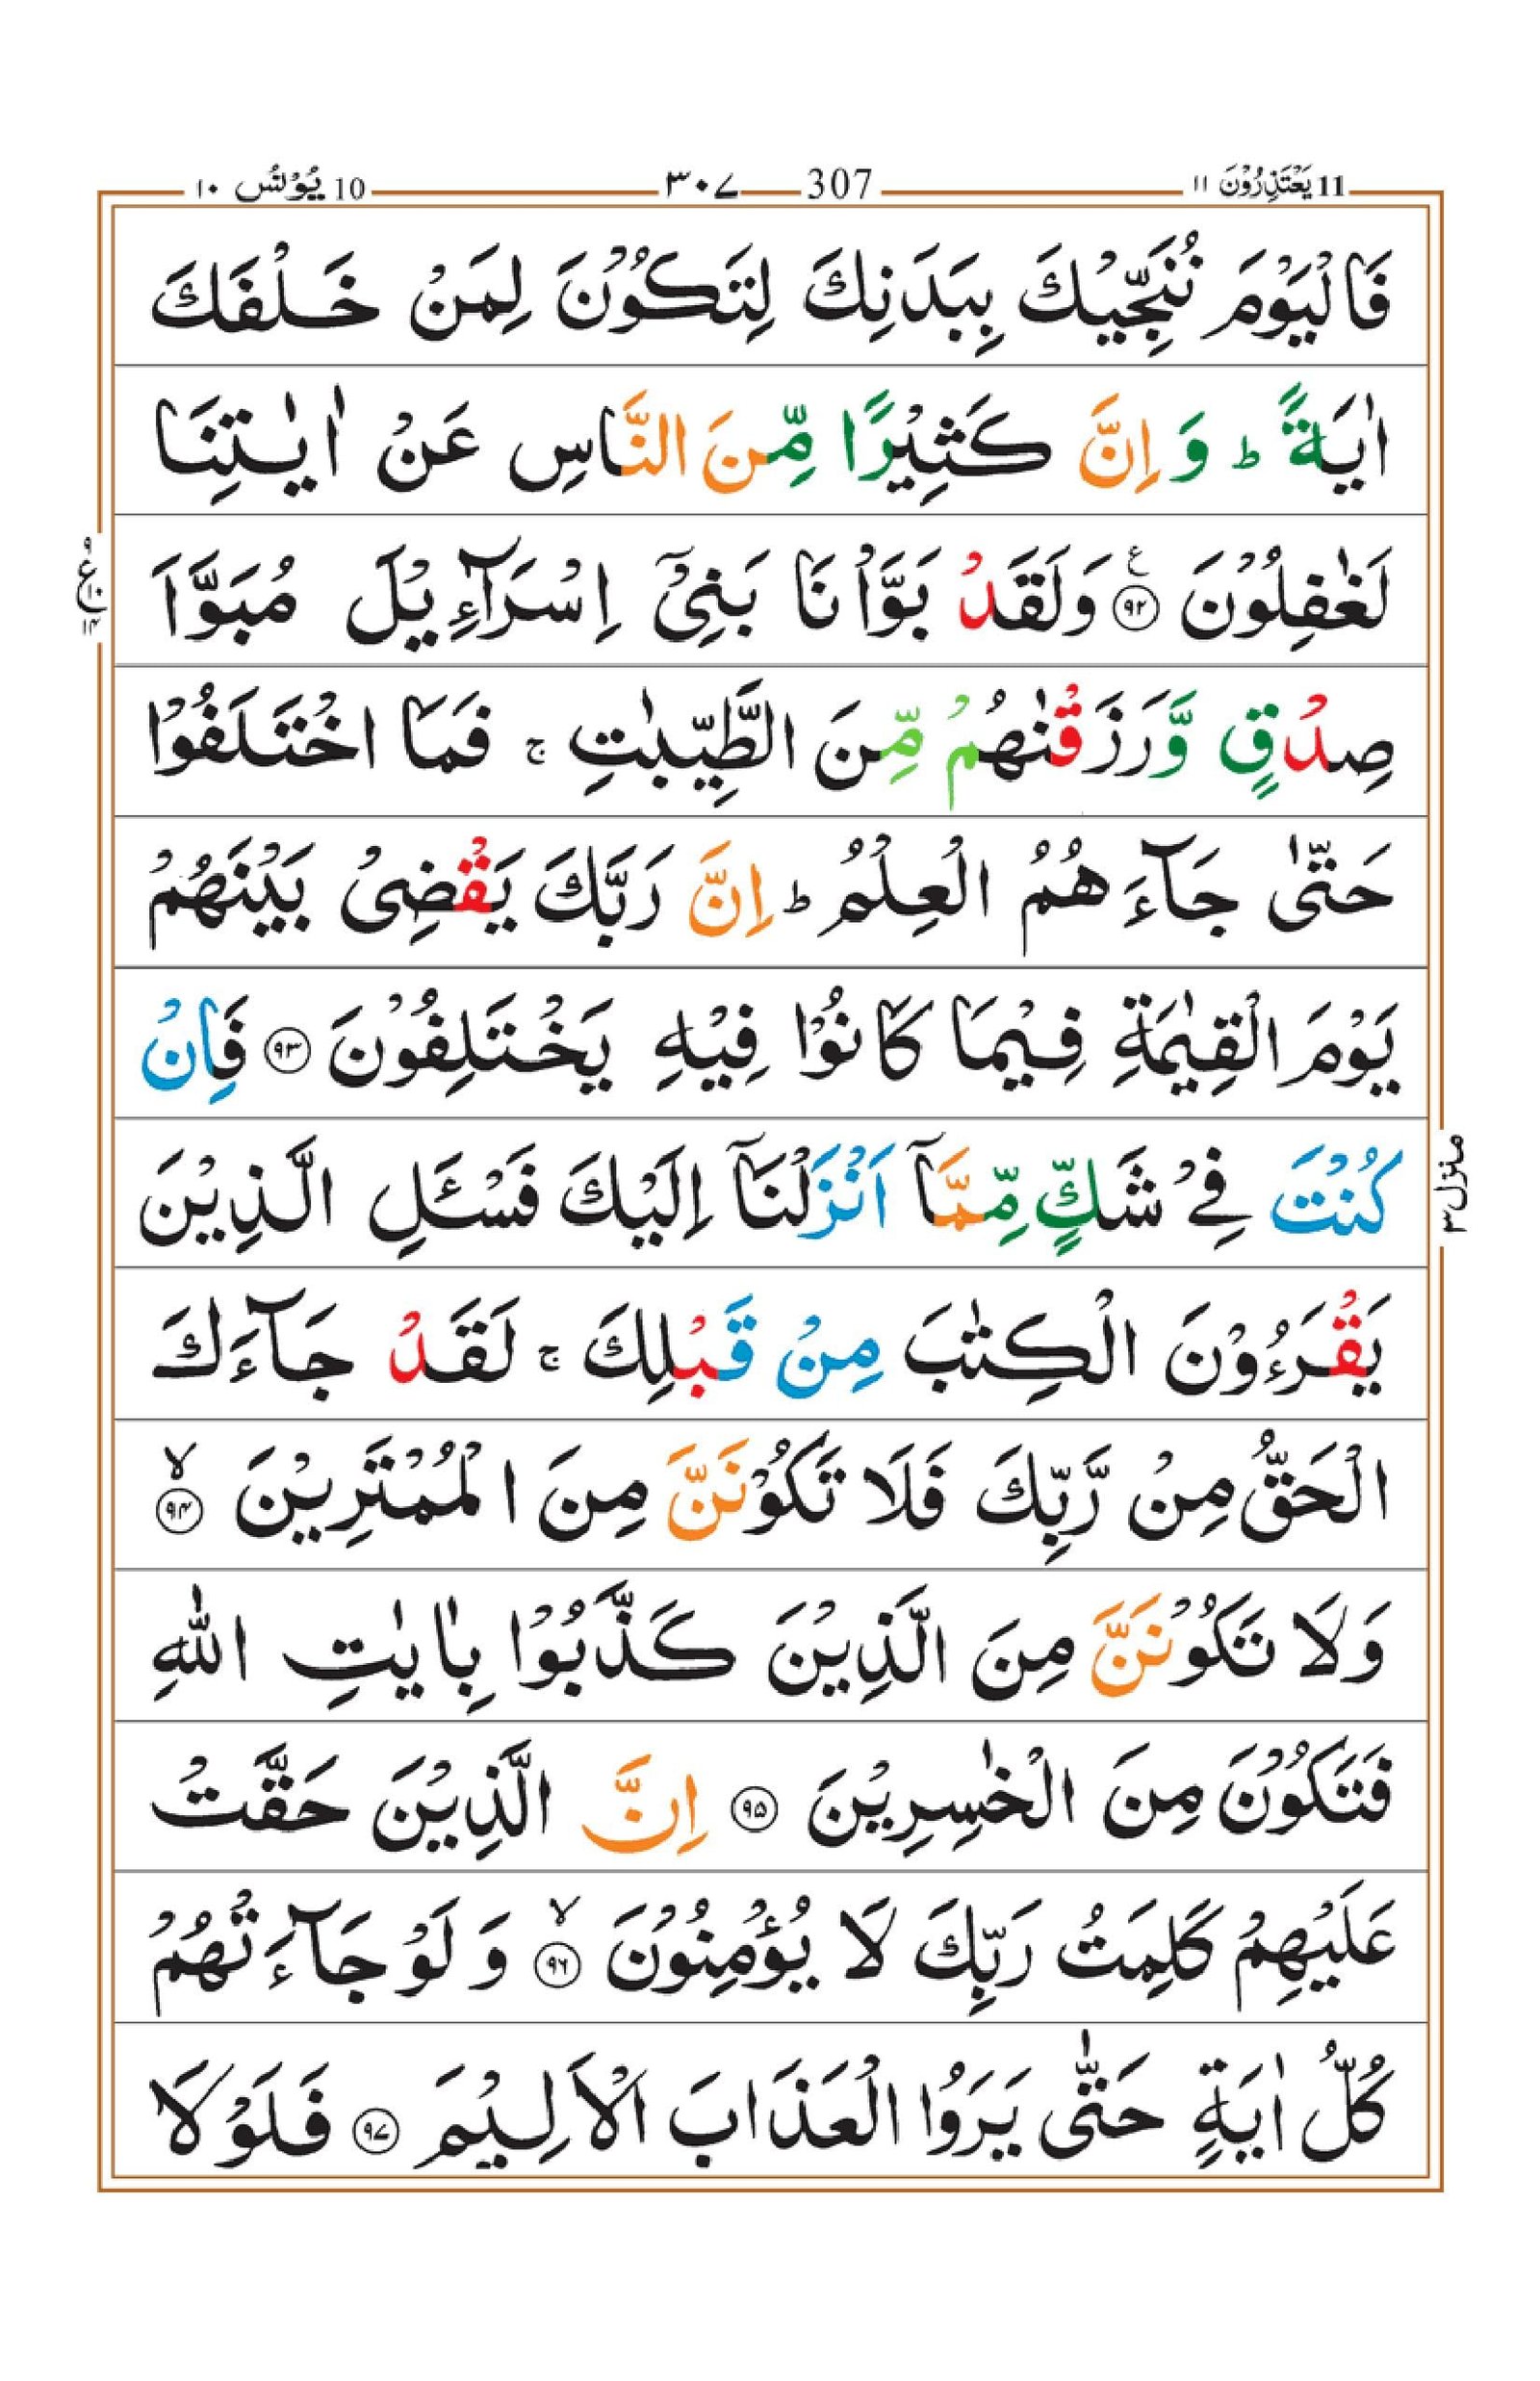 11 يَعْتَذِرُوْنَ ١١
307 ٣٠٧
10 يُوْنُس ١٠
فَالْيَوْمَ نُنَجِّيْكَ بِبَدَنِكَ لِتَكُوْنَ لِمَنْ خَلْفَكَ
اٰيَةً ؕ وَ اِنَّ كَثِيْرًا مِّنَ النَّاسِ عَنْ اٰيٰتِنَا
لَغٰفِلُوْنَ ﴿۹۲﴾ ع وَلَقَدْ بَوَّاْنَا بَنِيْۤ اِسْرَآءِيْلَ مُبَوَّاَ
صِدْقٍ وَّرَزَقْنٰهُمْ مِّنَ الطَّيِّبٰتِ ۚ فَمَا اخْتَلَفُوْا
حَتّٰى جَآءَهُمُ الْعِلْمُ ؕ اِنَّ رَبَّكَ يَقْضِىْ بَيْنَهُمْ
يَوْمَ الْقِيٰمَةِ فِيْمَا كَانُوْا فِيْهِ يَخْتَلِفُوْنَ ﴿۹۳﴾ فَاِنْ
كُنْتَ فِيْ شَكٍّ مِّمَّاۤ اَنْزَلْنَاۤ اِلَيْكَ فَسْـَٔلِ الَّذِيْنَ
يَقْرَءُوْنَ الْكِتٰبَ مِنْ قَبْلِكَ ۚ لَقَدْ جَآءَكَ
الْحَقُّ مِنْ رَّبِّكَ فَلَا تَكُوْنَنَّ مِنَ الْمُمْتَرِيْنَ ﴿۹۴﴾ ۙ
وَلَا تَكُوْنَنَّ مِنَ الَّذِيْنَ كَذَّبُوْا بِاٰيٰتِ اللّٰهِ
فَتَكُوْنَ مِنَ الْخٰسِرِيْنَ ﴿۹۵﴾ اِنَّ الَّذِيْنَ حَقَّتْ
عَلَيْهِمْ كَلِمَتُ رَبِّكَ لَا يُؤْمِنُوْنَ ﴿۹۶﴾ ۙ وَ لَوْ جَآءَتْهُمْ
كُلُّ اٰيَةٍ حَتّٰى يَرَوُا الْعَذَابَ الْاَلِيْمَ ﴿۹۷﴾ فَلَوْلَا
ع ۹ ۱۰ ۱۴
منزل ۳